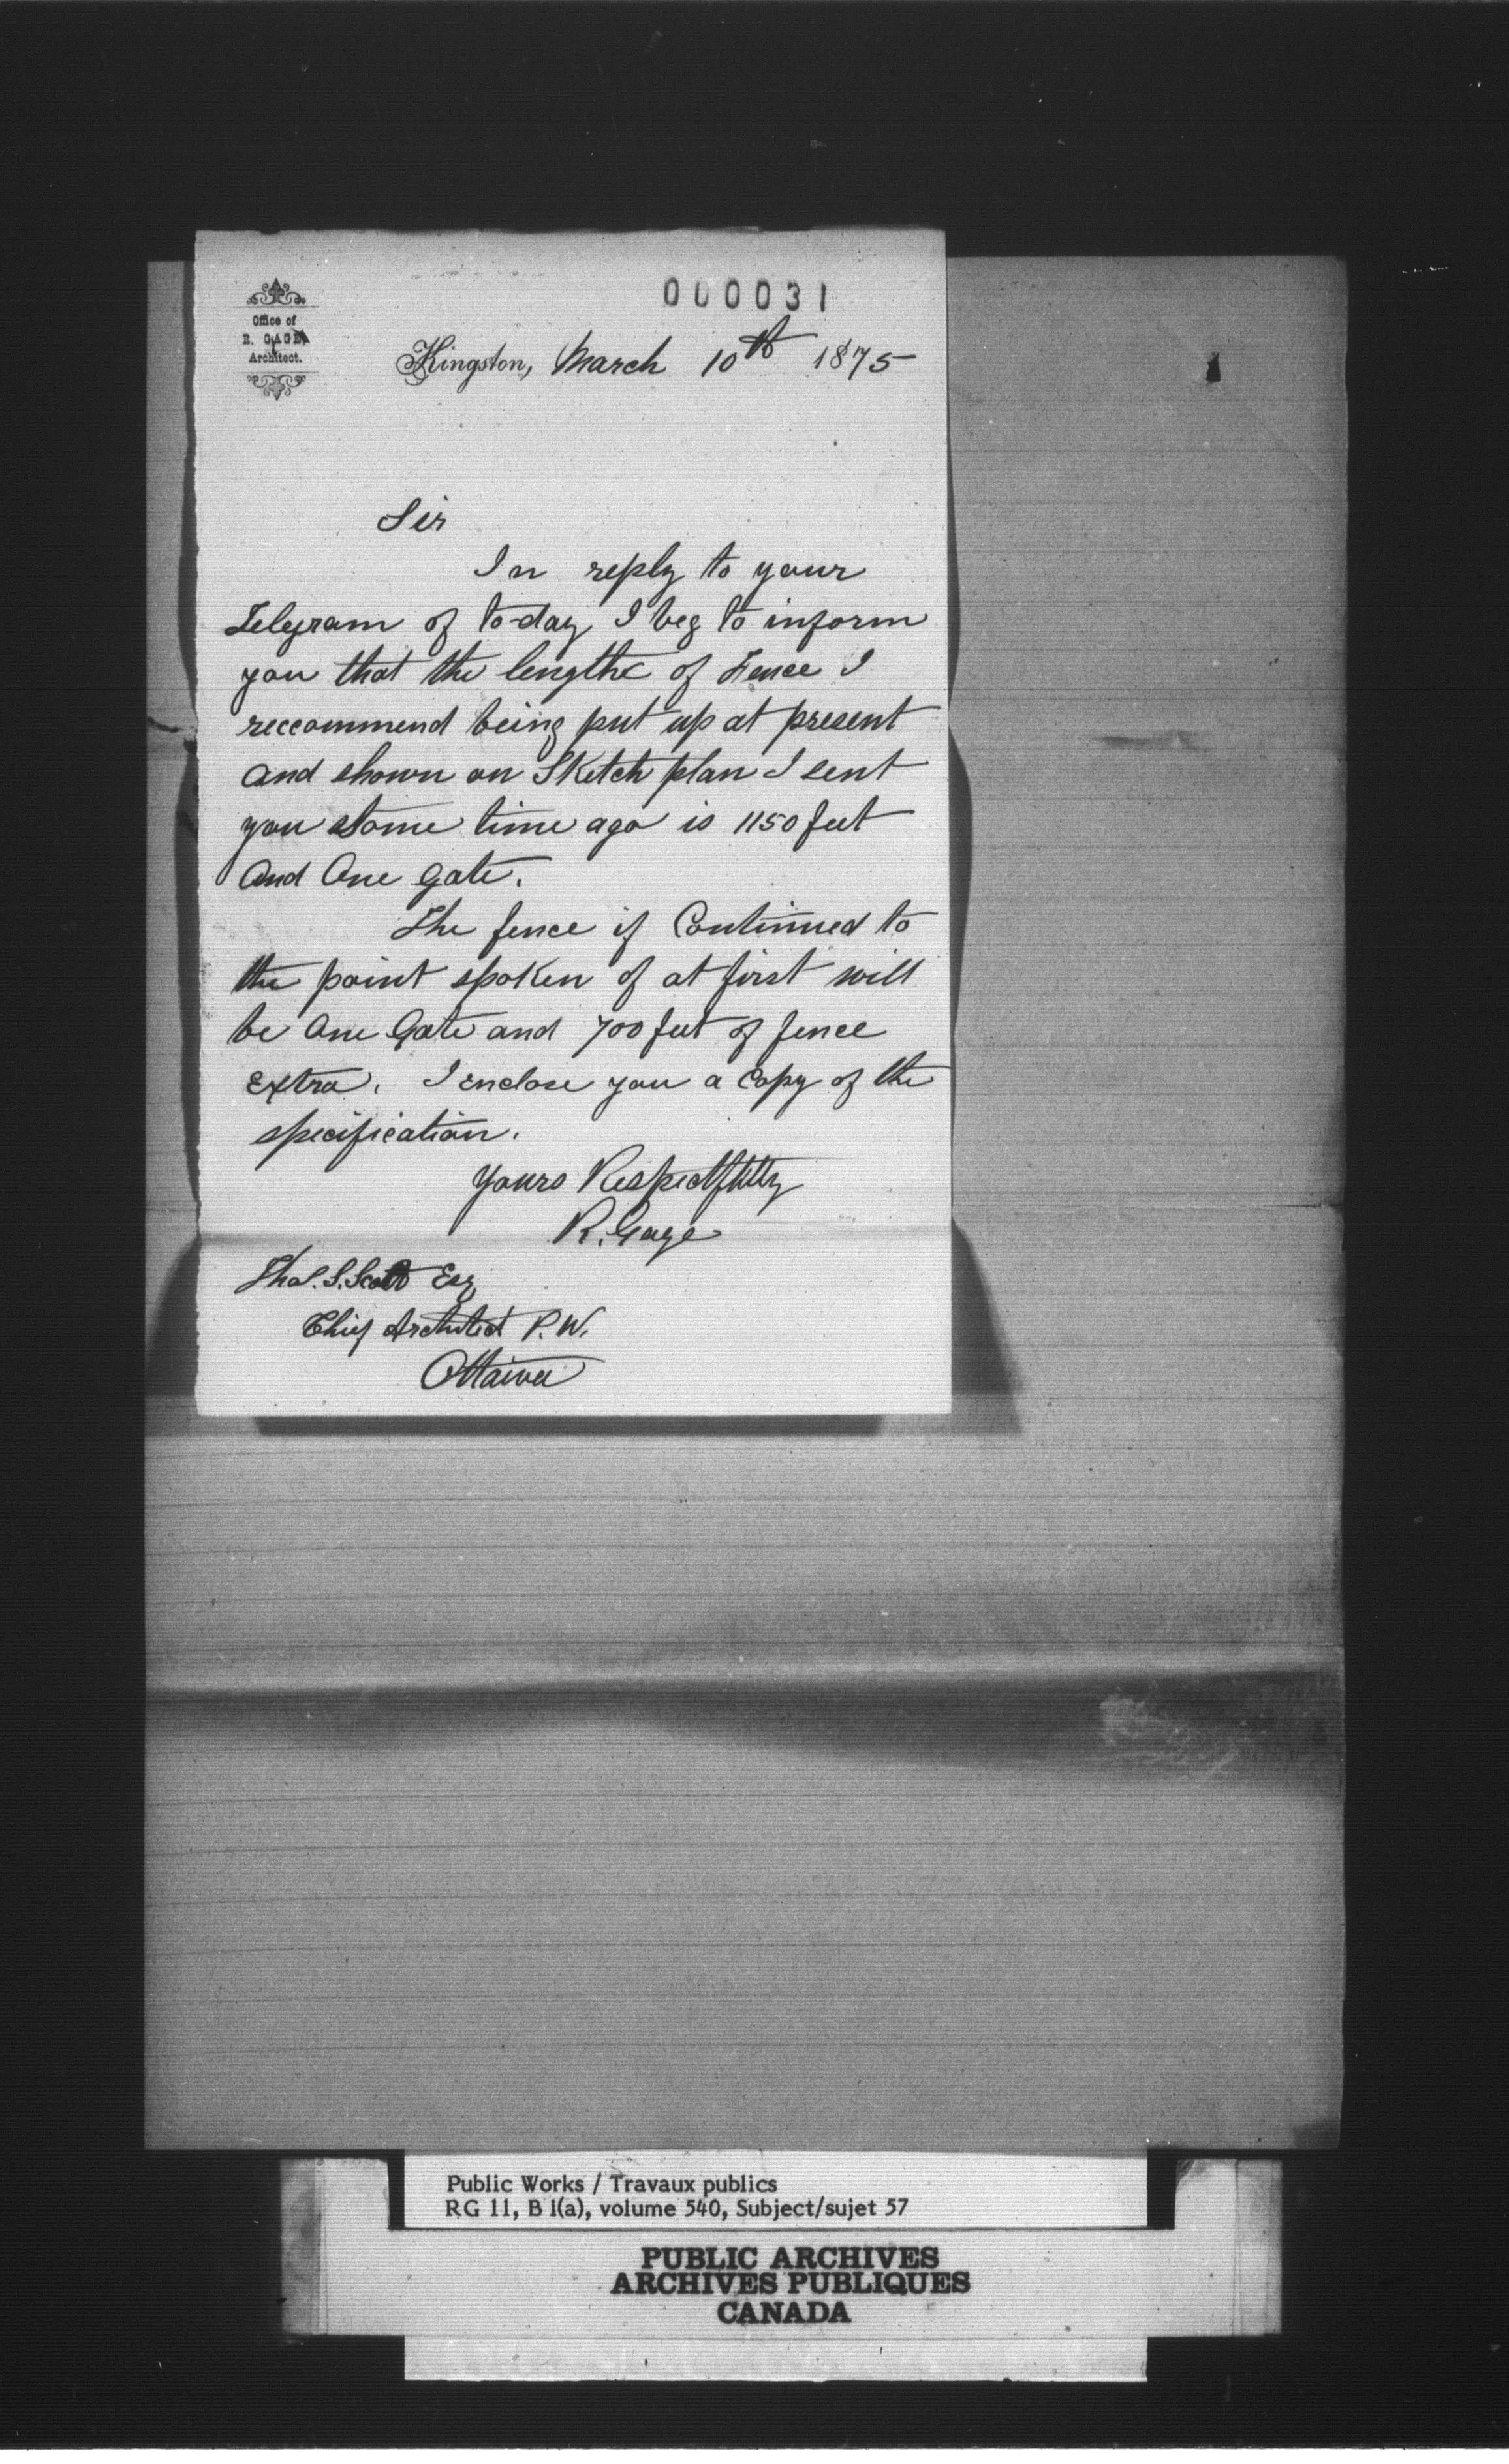 000031
Office of
R. GAGE
Architect.
Kingston, March 10th 1875
Sir
In reply to your
Telegram of to-day I beg to inform
you that the lengthe of Fence I
reccommend being put up at present
and shown on Sketch plan I sent
you some time ago is 1150 feet
and One gate.
The fence if Continued to
the point spoken of at first will
be One Gate and 700 feet of fence
extra. I enclose you a Copy of the
specification.
Yours Respectfully
R. Gage
Thos. S. Scott Esq
Chief Architect P. W.
Ottawa
Public Works / Travaux publics
RG 11, B 1(a), volume 540, Subject/sujet 57
PUBLIC ARCHIVES
ARCHIVES PUBLIQUES
CANADA